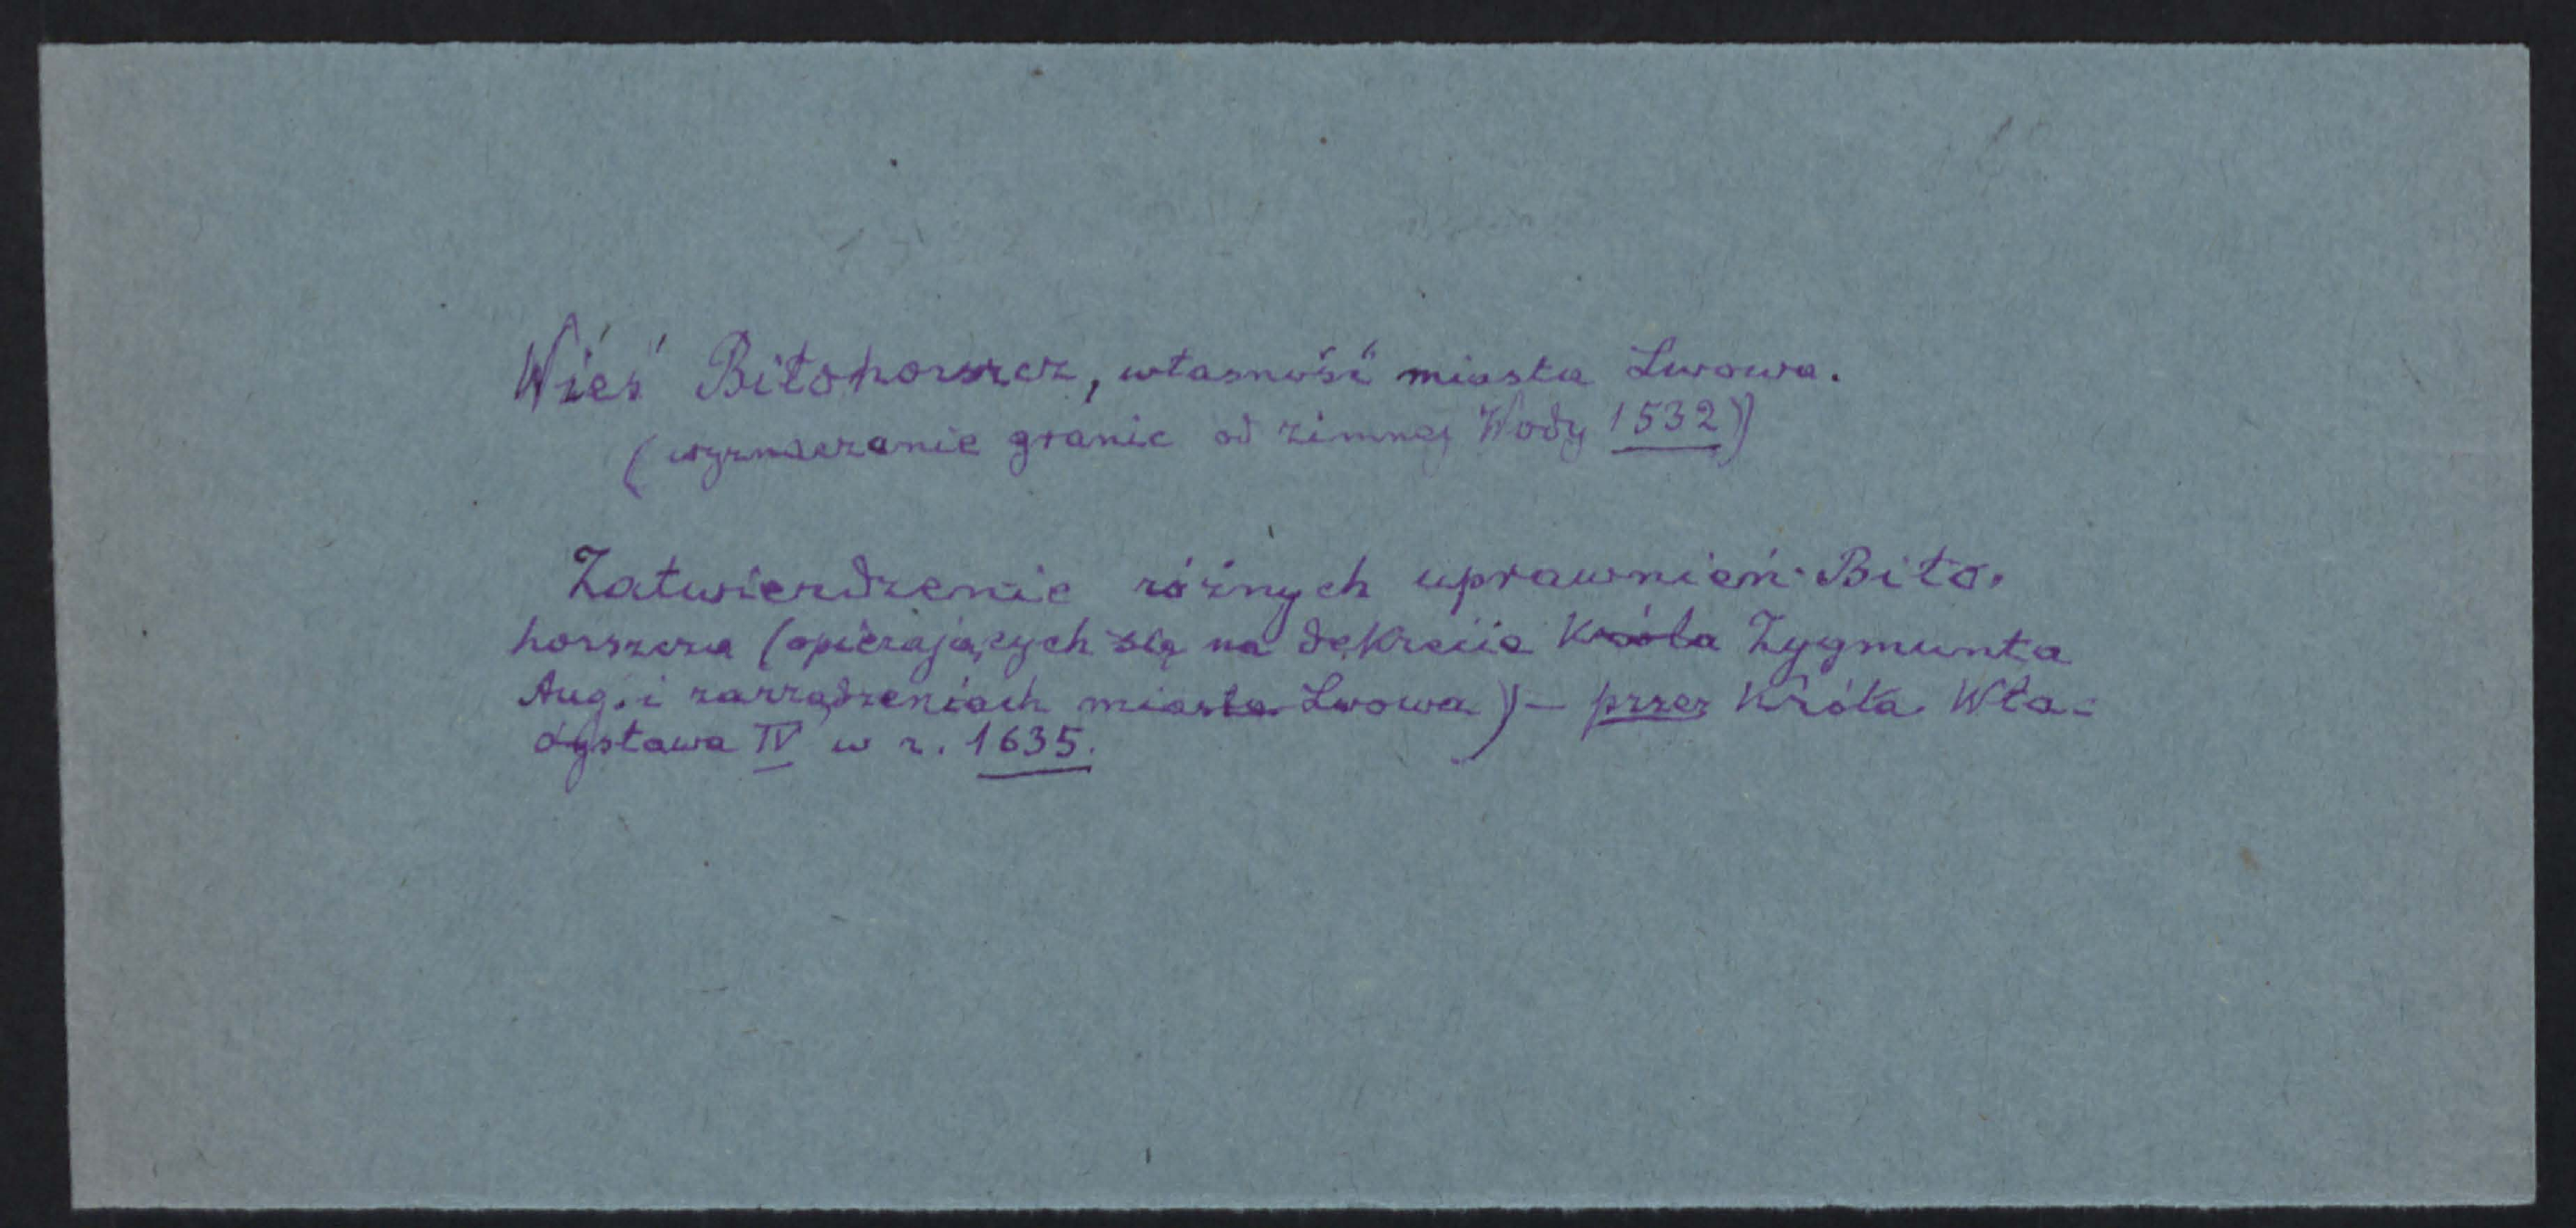 Wieś Biłohorszcz, własność miasta Lwowa.
(wyznaczanie granic od zimnej Wody 1532)
Zatwierdzenie różnych uprawnień Biło-
horszcza (opierających się na dekrecie Króla Zygmunta
Aug. i zarządzeniach miasta Lwowa) – przez Króla Wła-
dysława IV w r. 1635.